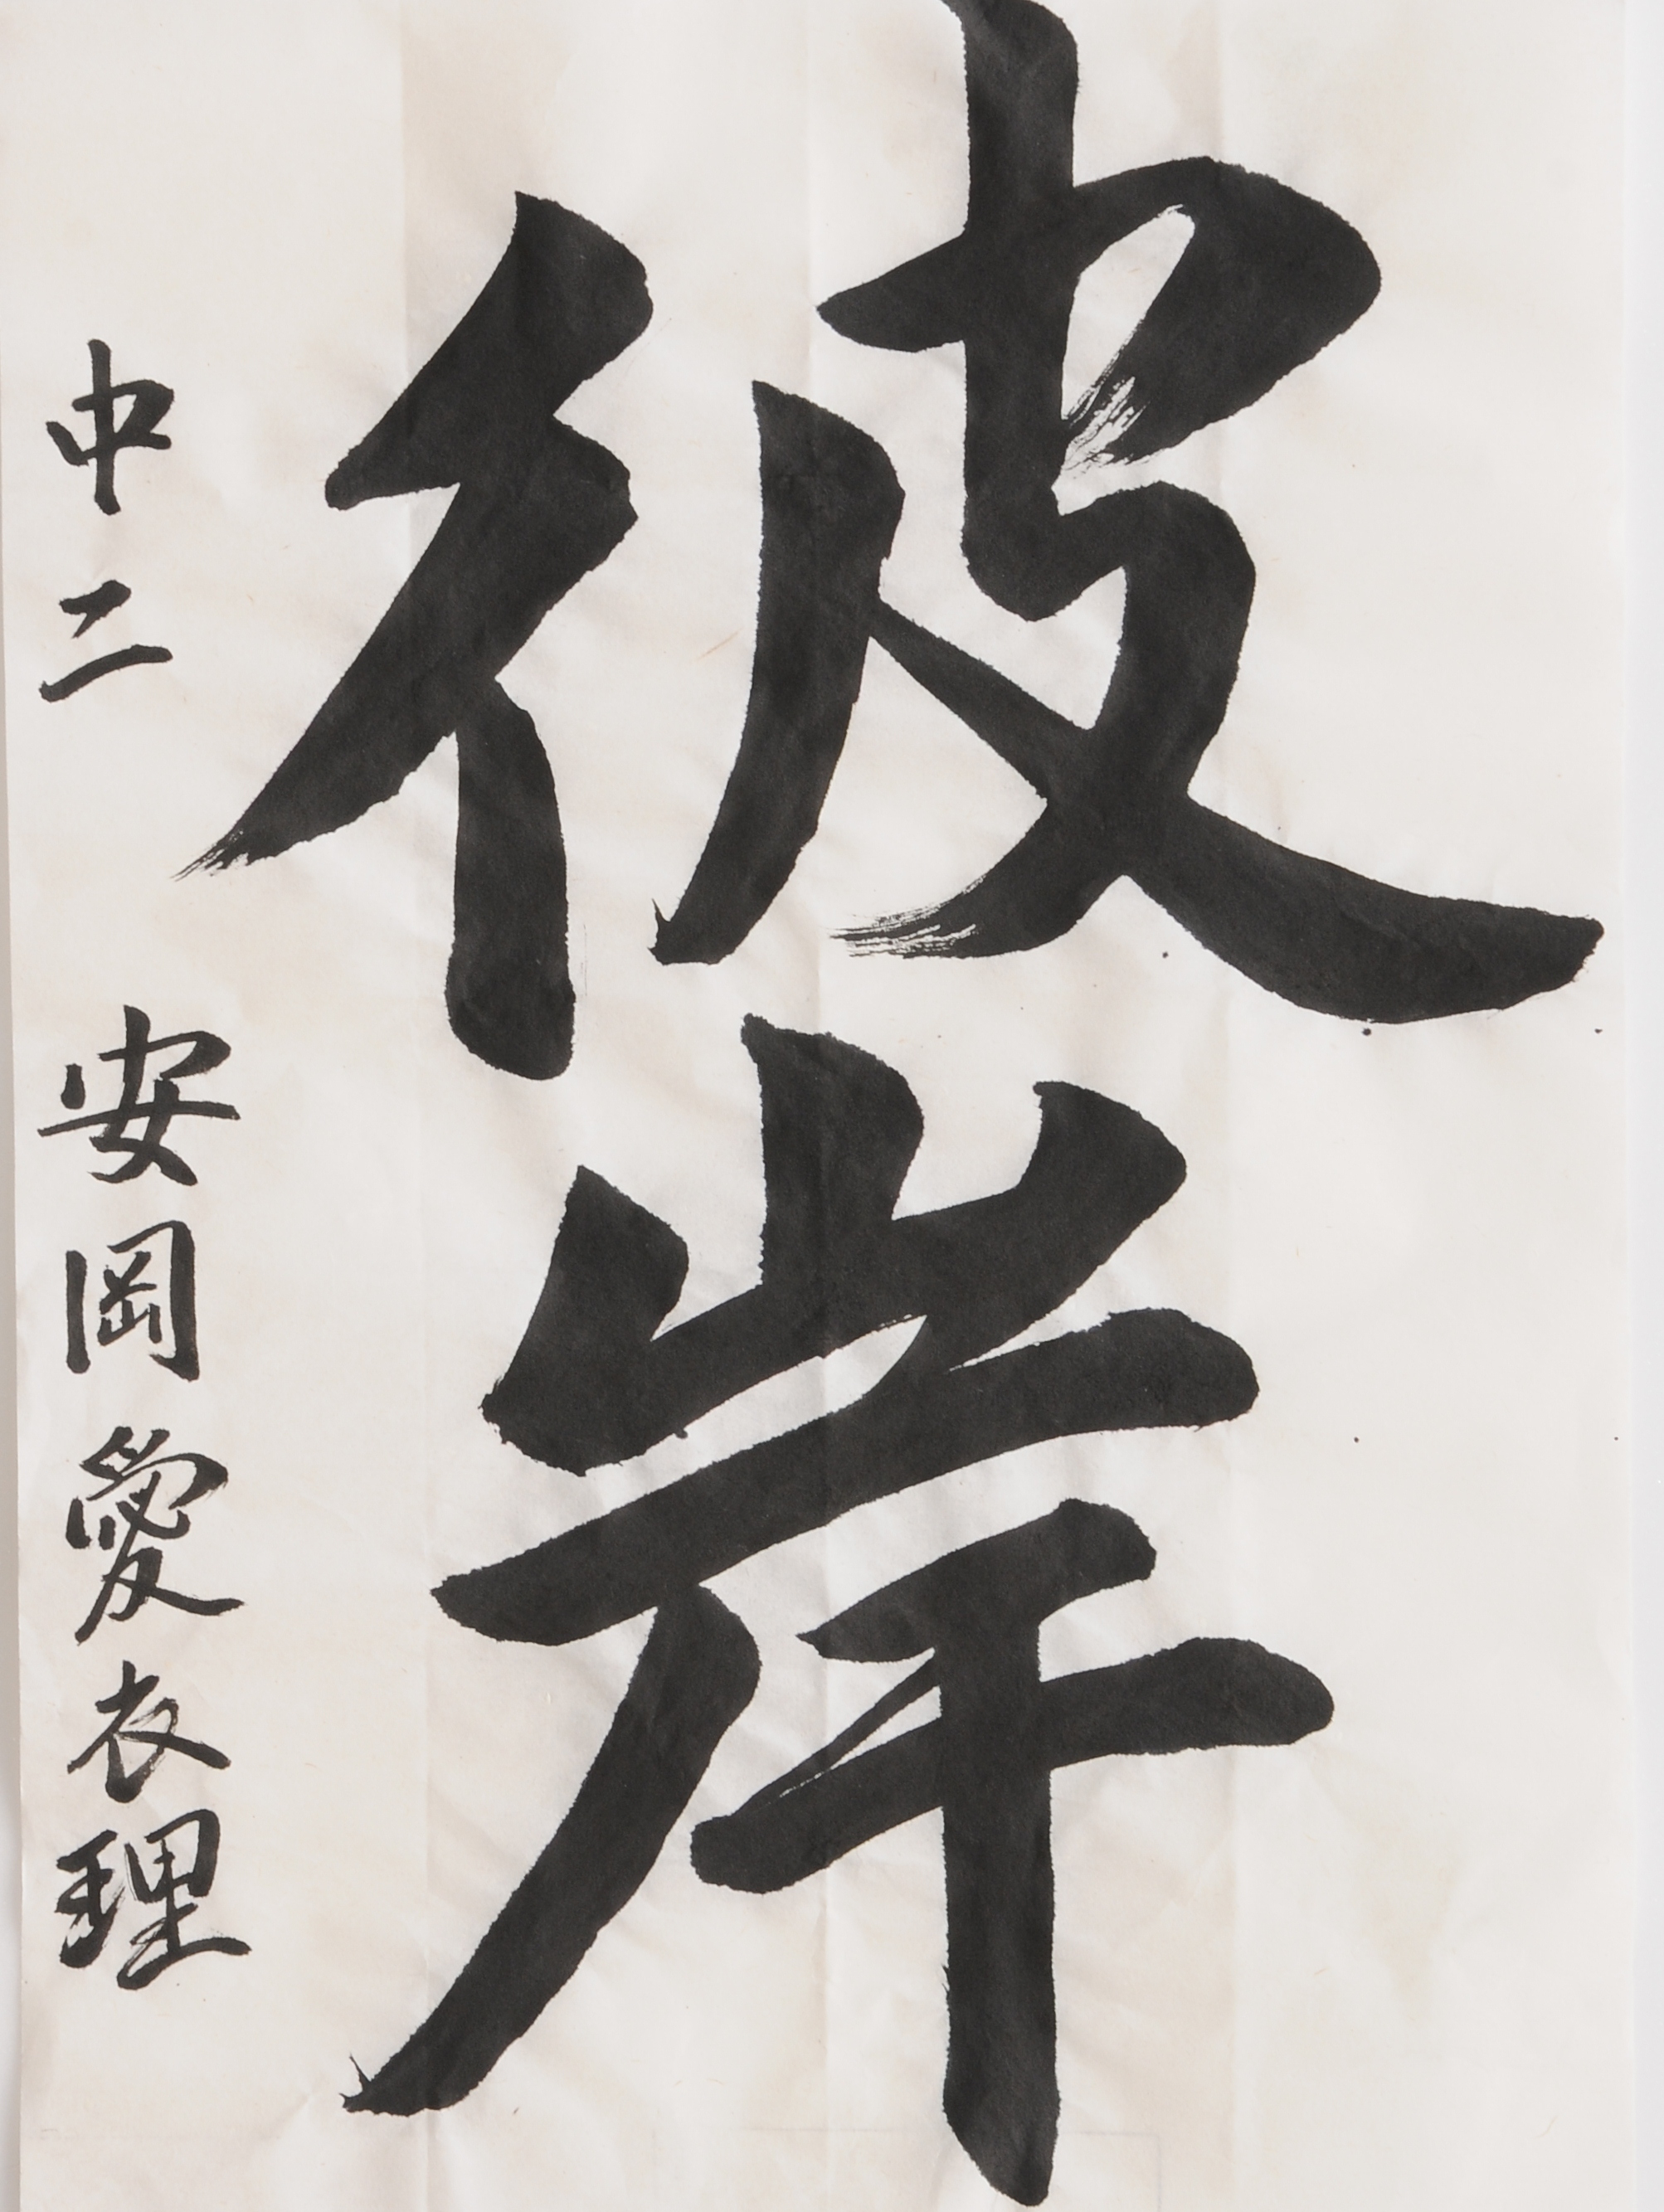 彼岸
中二 安岡愛衣理